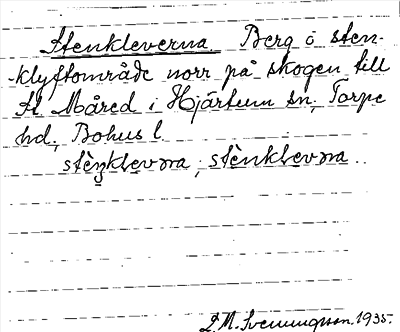 Stenkleverna. Berg o sten-
-klyftområde norr på skogen till
St. Måred i Hjärtum sn; Torpe
hd., Bohus l.
stèŋklevɷa; stènklevɷa.
L. M. Svenungsson. 1935.